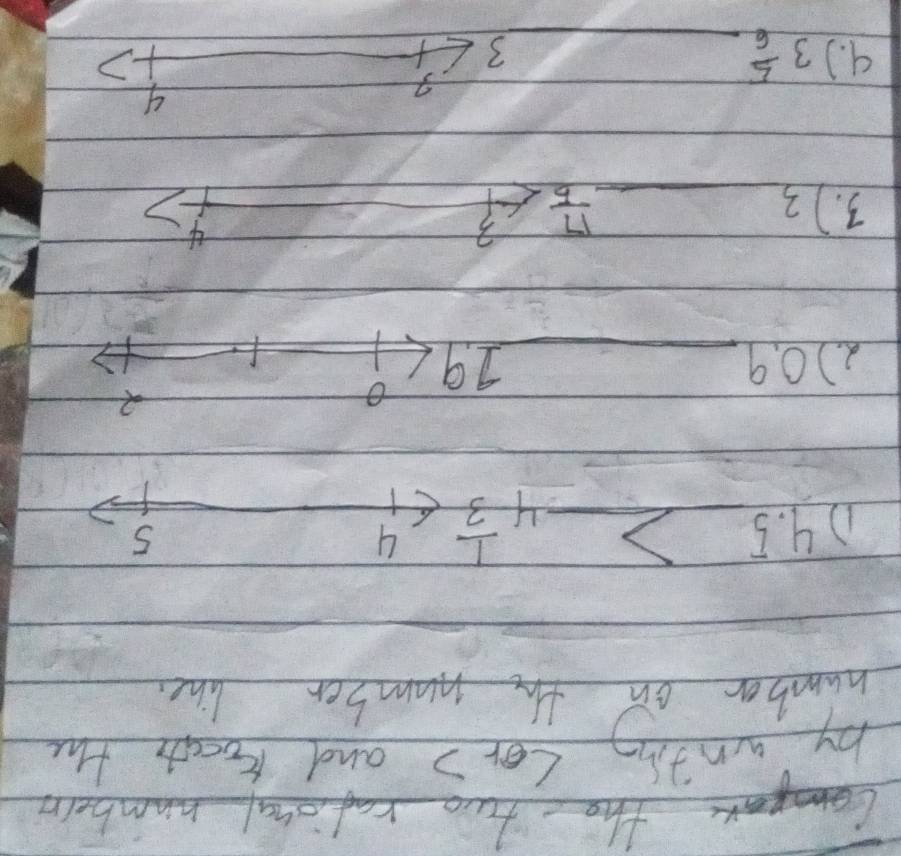 Compare the two rational numbers
by writing < or > and locate the
number on the number line.
1) 4.5 > 4 1/3 4 5
2.) 0.9 ____ 1.9 0 2
3.) 3 ____ 17/5 3 4
4.) 3 5/6 ____ 3 3 4